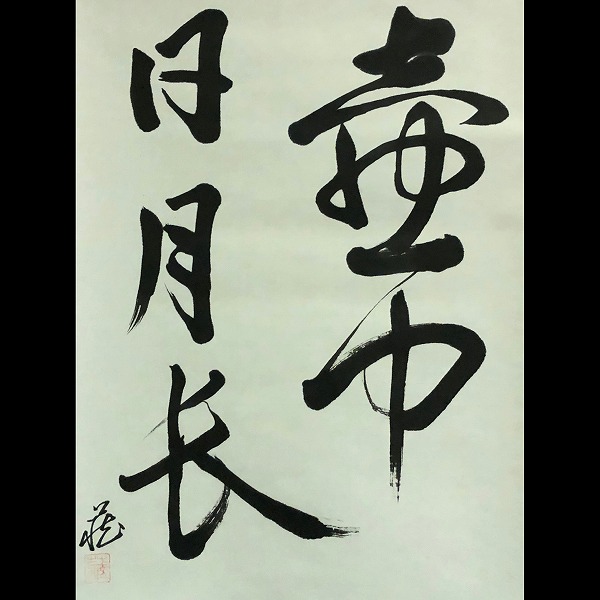 壺中
日月长